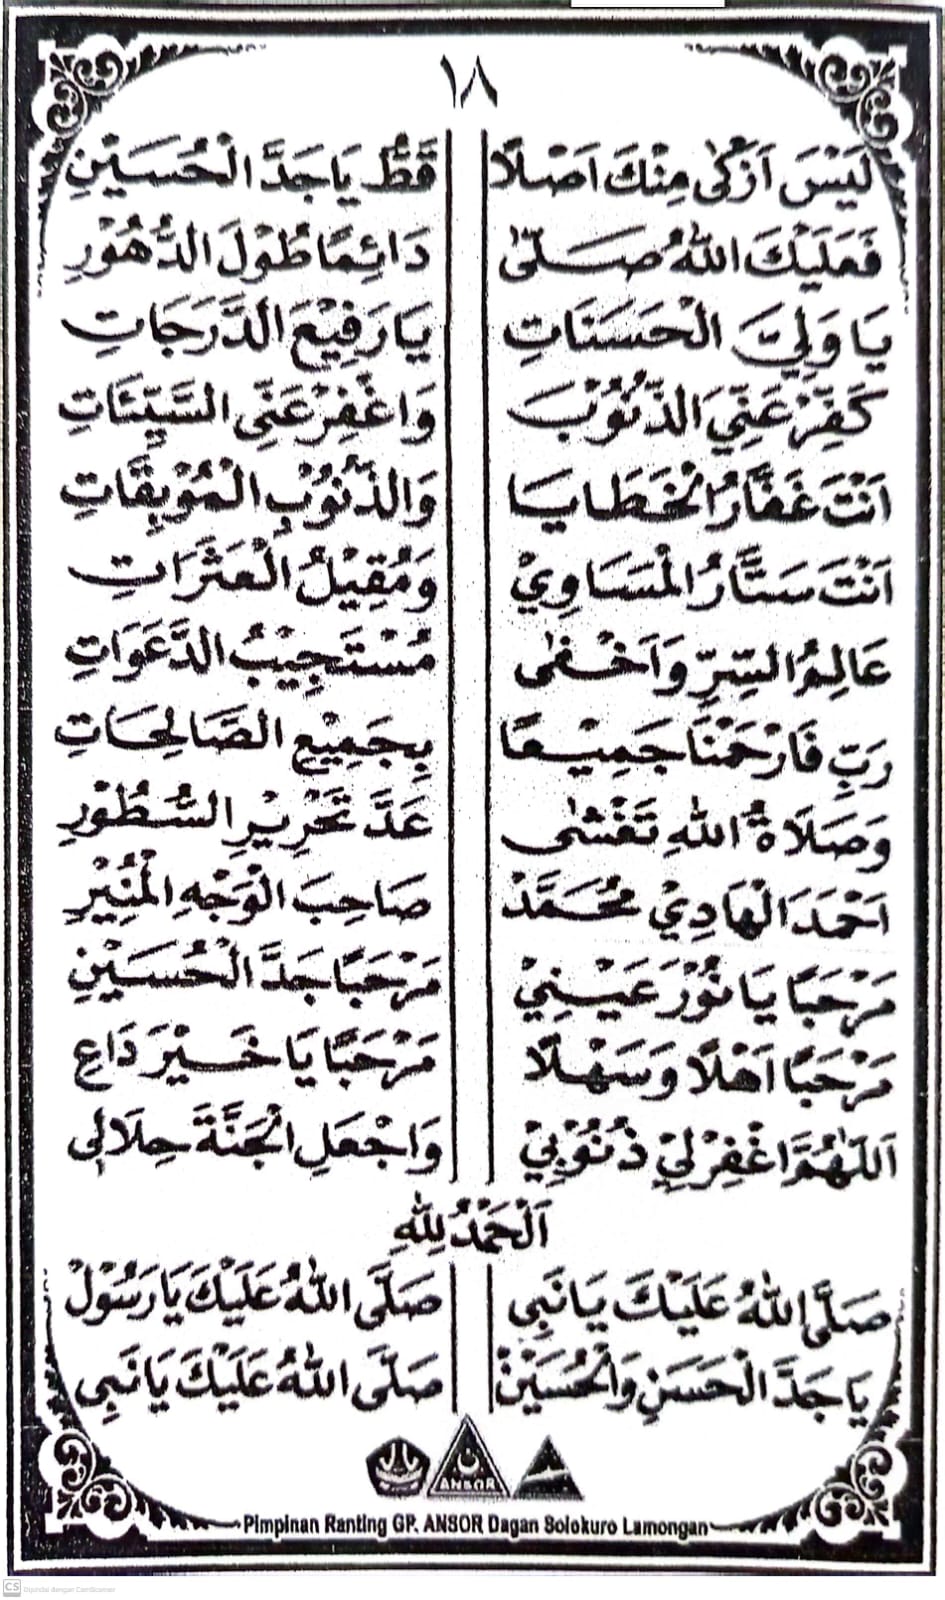 ١٨
لَيْسَ اَزْكٰى مِنْكَ اَصْلًا قَطُّ يَاجَدَّ الْحُسَيْنِ
فَعَلَيْكَ اللهُ صَلّٰى دَائِمًا طُوْلَ الدُّهُوْرِ
يَاوَلِيَّ الْحَسَنَاتِ يَارَفِيْعَ الدَّرَجَاتِ
كَفِّرْ عَنِّيَ الذُّنُوْبَ وَاغْفِرْ عَنِّى السَّيِّئَاتِ
اَنْتَ غَفَّارُ الْخَطَايَا وَالذُّنُوْبِ الْمُوْبِقَاتِ
اَنْتَ سَتَّارُ الْمَسَاوِيْ وَمُقِيْلُ الْعَثَرَاتِ
عَالِمُ السِّرِّ وَاَخْفٰى مُسْتَجِيْبُ الدَّعَوَاتِ
رَبِّ فَارْحَمْنَا جَمِيْعًا بِجَمِيْعِ الصَّالِحَاتِ
وَصَلَاةُ اللهِ تَغْشٰى عَدَّ تَحْرِيْرِ السُّطُوْرِ
اَحْمَدَ الْهَادِيْ مُحَمَّدْ صَاحِبَ الْوَجْهِ الْمُنِيْرِ
مَرْحَبًا يَانُوْرَ عَيْنِيْ مَرْحَبًا جَدَّ الْحُسَيْنِ
مَرْحَبًا اَهْلًا وَسَهْلًا مَرْحَبًا يَا خَيْرَ دَاعِ
اَللّٰهُمَّ اغْفِرْلِيْ ذُنُوْبِيْ وَاجْعَلِ الْجَنَّةَ حِلَالِى
اَلْحَمْدُ لِلّٰهِ
صَلَّى اللهُ عَلَيْكَ يَانَبِى صَلَّى اللهُ عَلَيْكَ يَارَسُوْلْ
يَاجَدَّ الْحَسَنِ وَالْحُسَيْنْ صَلَّى اللهُ عَلَيْكَ يَانَبِى
ANSOR
Pimpinan Ranting GP. ANSOR Dagan Solokuro Lamongan
CS Dipindai dengan CamScanner